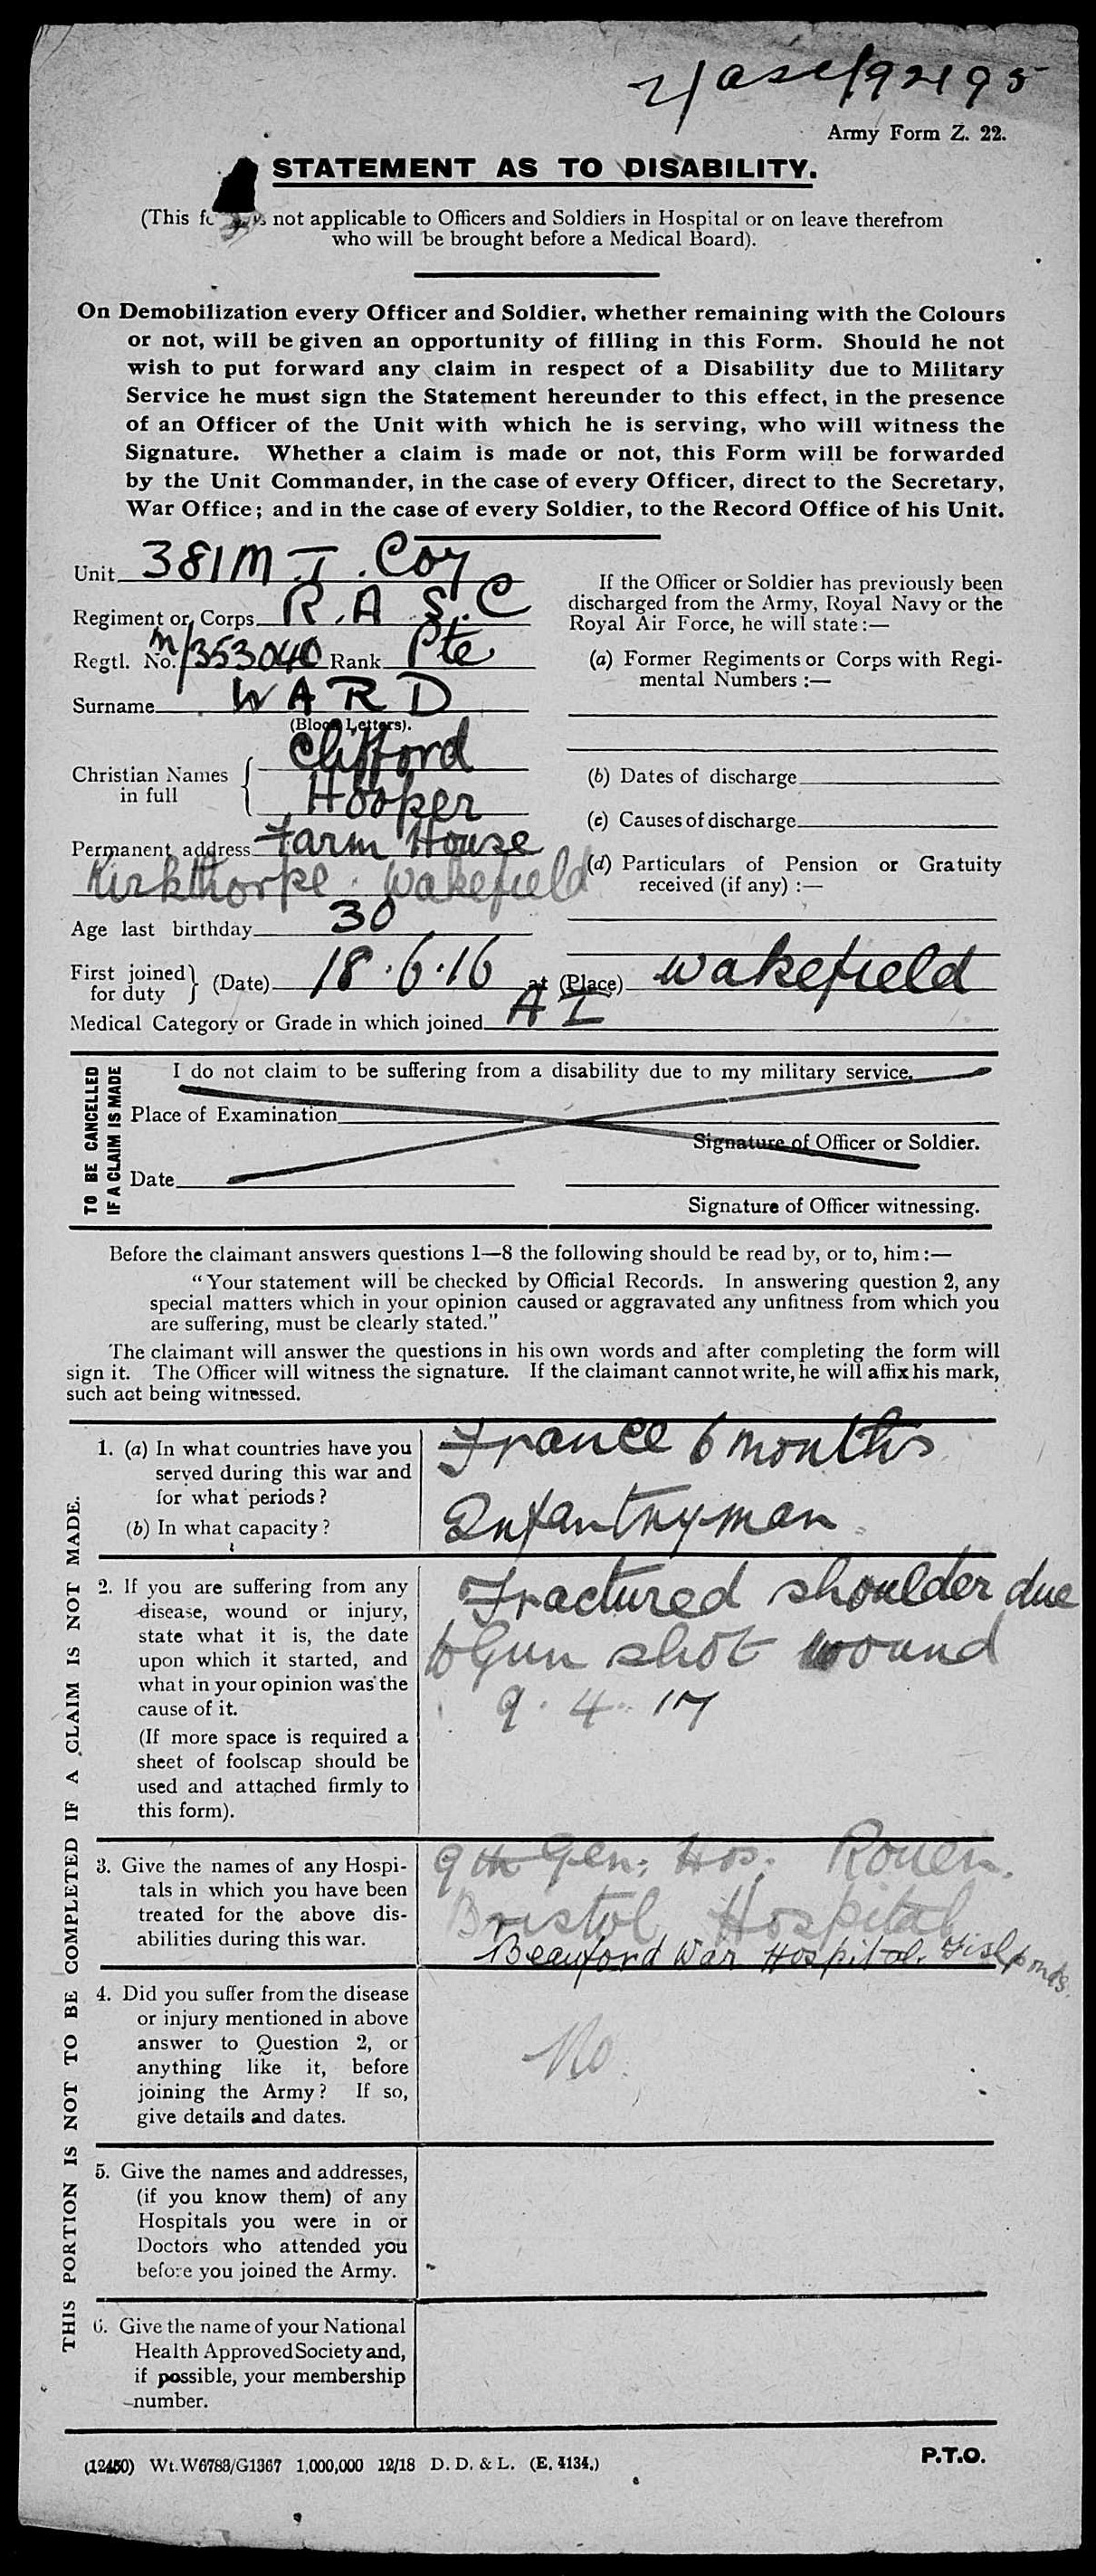 2/ASC/92195
Army Form Z. 22.
STATEMENT AS TO DISABILITY.
(This is not applicable to Officers and Soldiers in Hospital or on leave therefrom
who will be brought before a Medical Board).
On Demobilization every Officer and Soldier, whether remaining with the Colours
or not, will be given an opportunity of filling in this Form. Should he not
wish to put forward any claim in respect of a Disability due to Military
Service he must sign the Statement hereunder to this effect, in the presence
of an Officer of the Unit with which he is serving, who will witness the
Signature. Whether a claim is made or not, this Form will be forwarded
by the Unit Commander, in the case of every Officer, direct to the Secretary,
War Office; and in the case of every Soldier, to the Record Office of his Unit.
Unit 381 M.T. Coy
Regiment or Corps R.A.S.C
Regtl. No. M/353040 Rank Pte
Surname WARD
(Block Letters).
Christian Names in full Clifford
Hooper
Permanent address Farm House
Kirkthorpe. Wakefield
Age last birthday 30
If the Officer or Soldier has previously been
discharged from the Army, Royal Navy or the
Royal Air Force, he will state:—
(a) Former Regiments or Corps with Regi-
mental Numbers :—
(b) Dates of discharge
(c) Causes of discharge
(d) Particulars of Pension or Gratuity
received (if any) :—
First joined for duty } (Date) 18.6.16 at (Place) Wakefield
Medical Category or Grade in which joined A I
TO BE CANCELLED
IF A CLAIM IS MADE
I do not claim to be suffering from a disability due to my military service.
Place of Examination
Signature of Officer or Soldier.
Date
Signature of Officer witnessing.
Before the claimant answers questions 1—8 the following should be read by, or to, him:—
"Your statement will be checked by Official Records. In answering question 2, any
special matters which in your opinion caused or aggravated any unfitness from which you
are suffering, must be clearly stated."
The claimant will answer the questions in his own words and after completing the form will
sign it. The Officer will witness the signature. If the claimant cannot write, he will affix his mark,
such act being witnessed.
THIS PORTION IS NOT TO BE COMPLETED IF A CLAIM IS NOT MADE.
1. (a) In what countries have you
served during this war and
for what periods?
(b) In what capacity?
France 6 months
Infantryman
2. If you are suffering from any
disease, wound or injury,
state what it is, the date
upon which it started, and
what in your opinion was the
cause of it.
(If more space is required a
sheet of foolscap should be
used and attached firmly to
this form).
Fractured shoulder due
to Gun shot wound
9.4.17
3. Give the names of any Hospi-
tals in which you have been
treated for the above dis-
abilities during this war.
9th Gen: Hos: Rouen.
Bristol Hospital
Beauford War Hospital. Fishponds.
4. Did you suffer from the disease
or injury mentioned in above
answer to Question 2, or
anything like it, before
joining the Army? If so,
give details and dates.
No.
5. Give the names and addresses,
(if you know them) of any
Hospitals you were in or
Doctors who attended you
before you joined the Army.
6. Give the name of your National
Health Approved Society and,
if possible, your membership
number.
(12450) Wt. W6783/G1367 1,000,000 12/18 D. D. & L. (E. 4134.)
P.T.O.